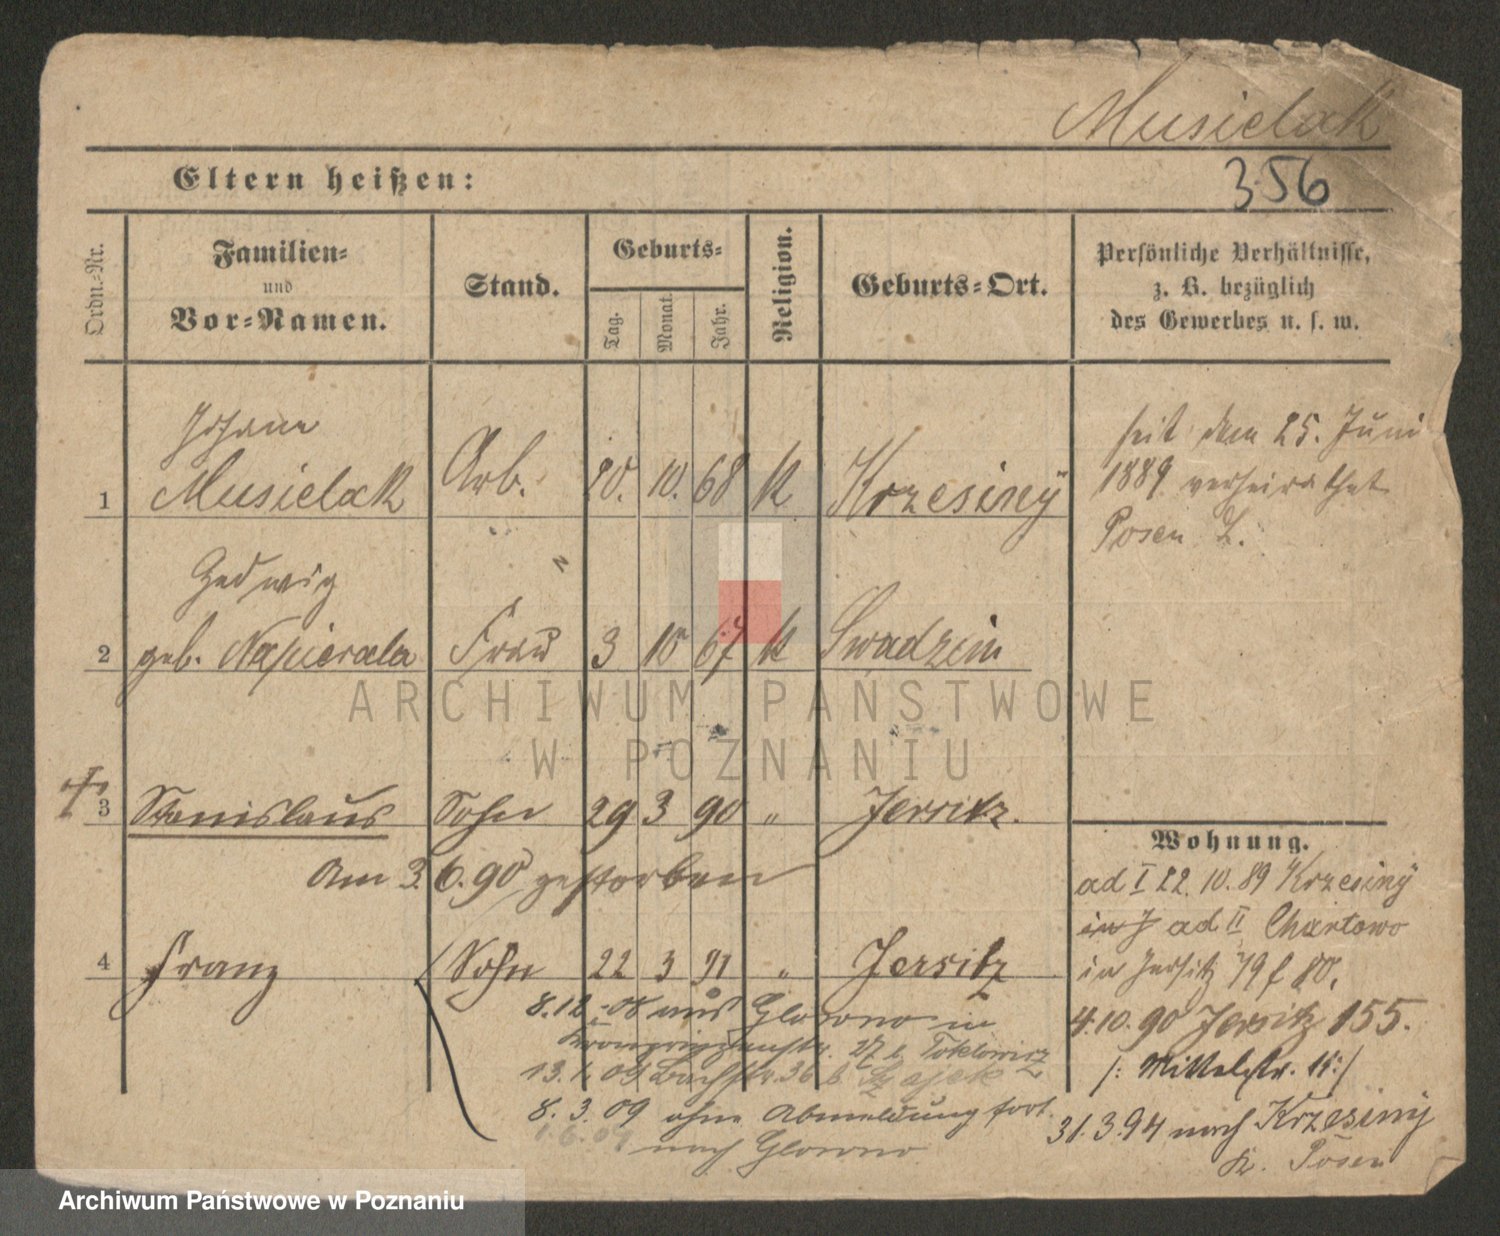 Musielak
Eltern heißen:
356
Ordn.-Nr.
Familien-
und
Vor-Namen.
Stand.
Geburts-
Tag.
Monat.
Jahr.
Religion.
Geburts-Ort.
Persönliche Verhältnisse,
z. B. bezüglich
des Gewerbes u. s. w.
Johann
1 Musielak Arb. 20. 10. 68 k Krzesiny
seit dem 25. Juni
1889 verheirathet
Posen L.
Hedwig
2 geb. Napierala Frau 3 10 67 k Swadzim
ARCHIWUM PAŃSTWOWE
W POZNANIU
3 Stanislaus Sohn 29 3 90 " Jersitz.
Am 3. 6. 90 gestorben
4 Franz Sohn 22 3 91 " Jersitz
8.12.08 aus Glowno in
Kronprinzenstr. 27 b. Toklowicz
13.1.09 Bachstr. 36 b. Szajek
8.3.09 ohne Abmeldung fort.
1.6.09 nach Glowno
Wohnung.
ad I 22.10.89 Krzesiny
in J ad II Chartowo
in Jersitz 79 f 80.
4.10.90 Jersitz 155.
/: Mittelstr. 15:/
31.3.94 nach Krzesiny
Kr. Posen
Archiwum Państwowe w Poznaniu